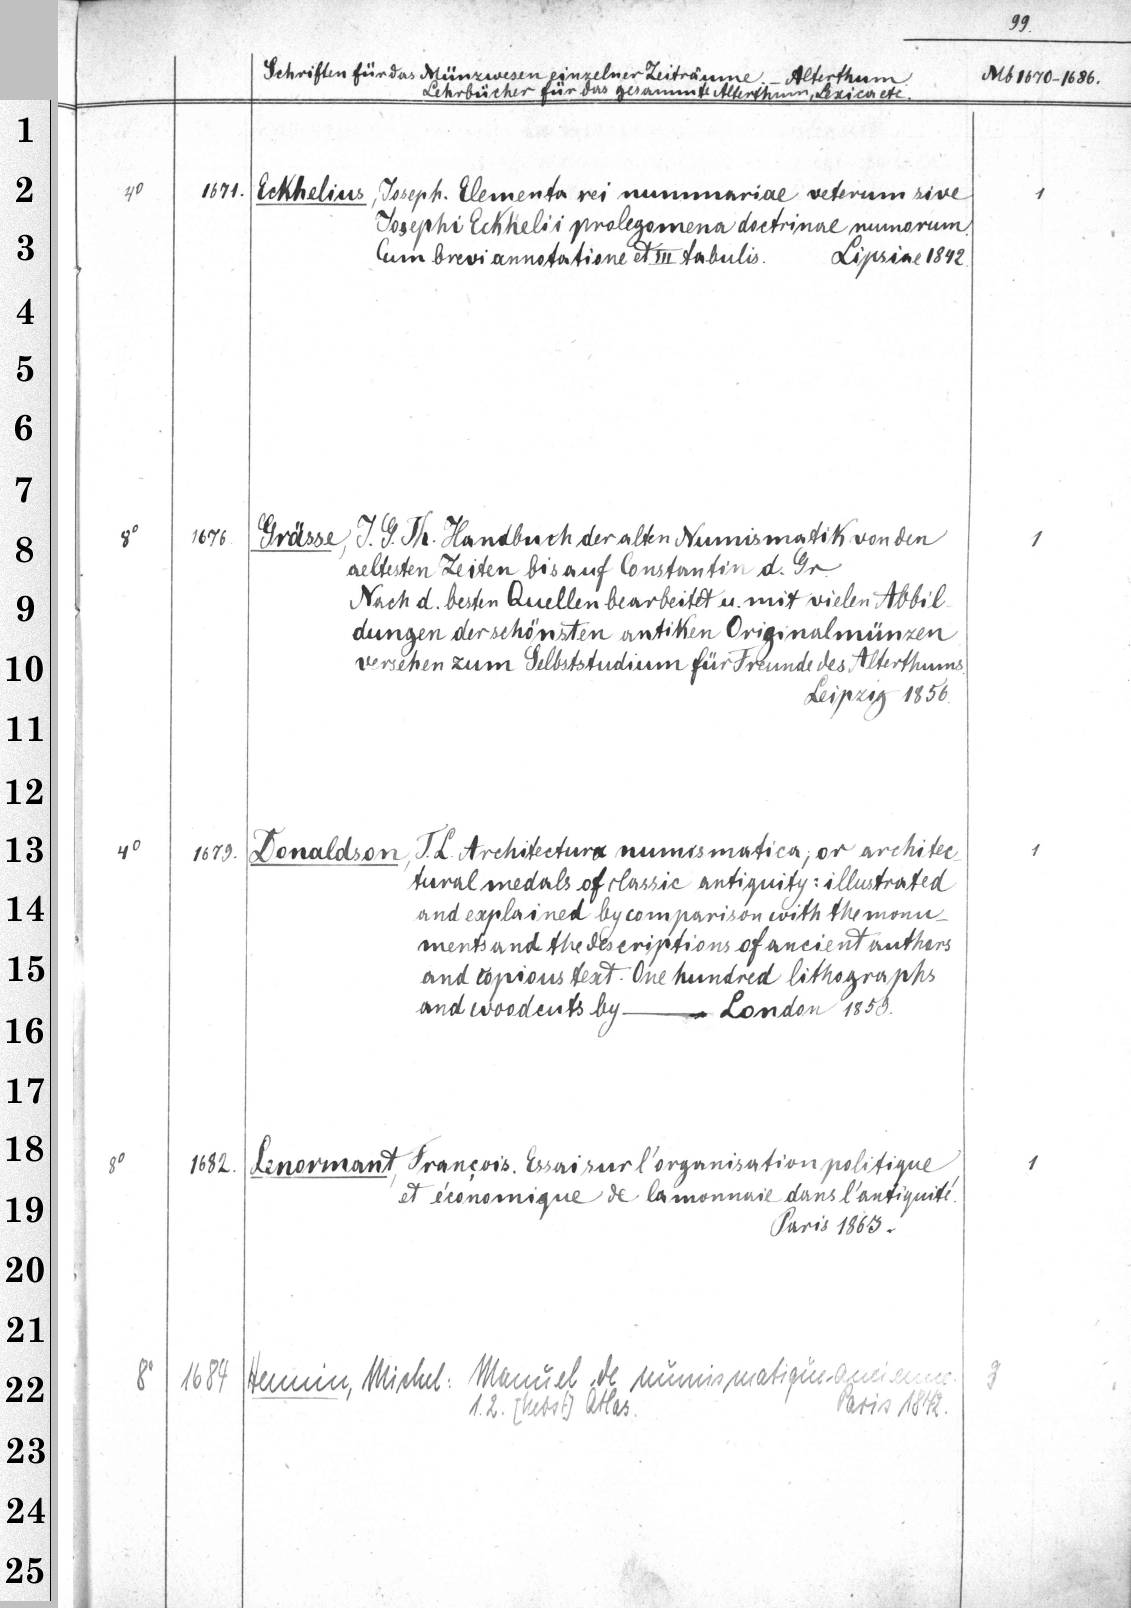 99.
Schriften für das Münzwesen einzelner Zeiträume. - Alterthum. Mb 1670-1686.
Lehrbücher für das gesammte Alterthum, Lexica etc.
1
2 4° 1671. Eckhelius, Joseph. Elementa rei nummariae veterum sive 1
Josephi Eckhelii prolegomena doctrinae numorum.
3 Cum brevi annotatione et III tabulis. Lipsiae 1842.
4
5
6
7
8 8° 1676. Grässe, J. G. Th. Handbuch der alten Numismatik von den 1
aeltesten Zeiten bis auf Constantin d. Gr.
9 Nach d. besten Quellen bearbeitet u. mit vielen Abbil-
dungen der schönsten antiken Originalmünzen
10 versehen zum Selbststudium für Freunde des Alterthums.
Leipzig 1856.
11
12
13 4° 1679. Donaldson, T. L. Architectura numismatica; or architec- 1
tural medals of classic antiquity: illustrated
14 and explained by comparison with the monu-
ments and the descriptions of ancient authors
15 and copious text. One hundred lithographs
16 and woodcuts by ——— London 1859.
17
18 8° 1682. Lenormant, François. Essai sur l'organisation politique 1
19 et économique de la monnaie dans l'antiquité.
Paris 1863.
20
21
22 8° 1684 Hennin, Michel: Manuel de numismatique ancienne. 3
1. 2. [nebst] Atlas. Paris 1842.
23
24
25